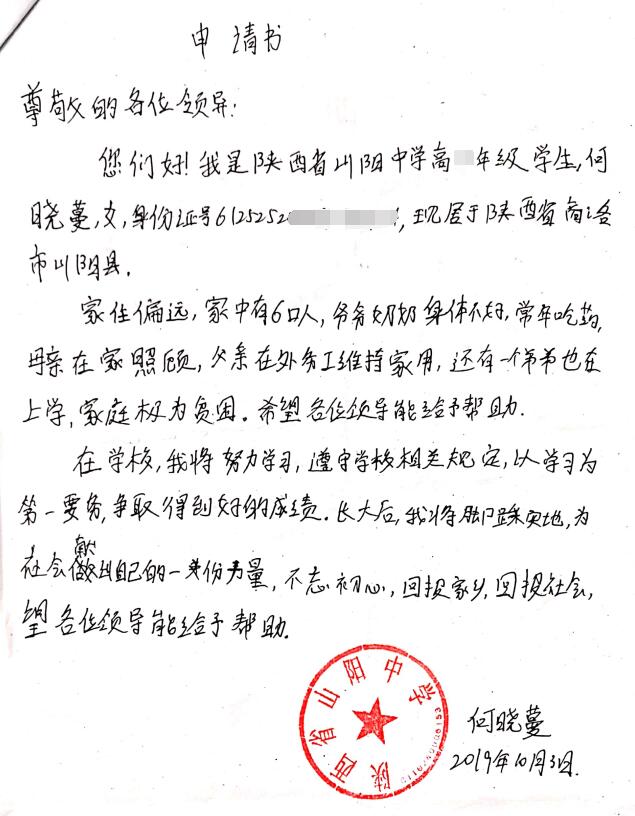 申请书
尊敬的各位领导:
您们好!我是陕西省山阳中学高 年级学生,何
晓蔓,女,身份证号6125252 ,现居于陕西省商洛
市山阳县.
家住偏远,家中有6口人,爷爷奶奶身体不好,常年吃药,
母亲在家照顾,父亲在外务工维持家用,还有一个弟弟也在
上学,家庭极为贫困。希望各位领导能给予帮助.
在学校,我将努力学习,遵守学校相关规定,以学习为
第一要务,争取得到好的成绩.长大后,我将脚踏实地,为
社会献出自己的一身份力量,不忘初心,回报家乡,回报社会,
望各位领导能给予帮助.
陕西省山阳中学
何晓蔓
2019年10月3日.